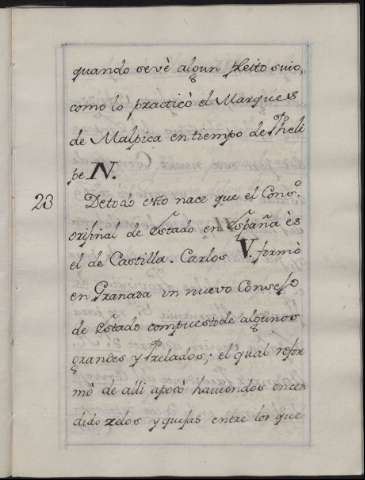 quando se vè algun pleito suio,
como lo practicò el Marques
de Malpica en tiempo de Pheli
pe IV.
23 De todo esto nace que el Cons.º
original de Estado en España ès
el de Castilla. Carlos V. formò
en Granada un nuevo Consejo
de Estado compuesto de algunos
grandes y Prelados; el qual refor
mò de alli apocò haviendose encen
dido zelos y quejas entre los que